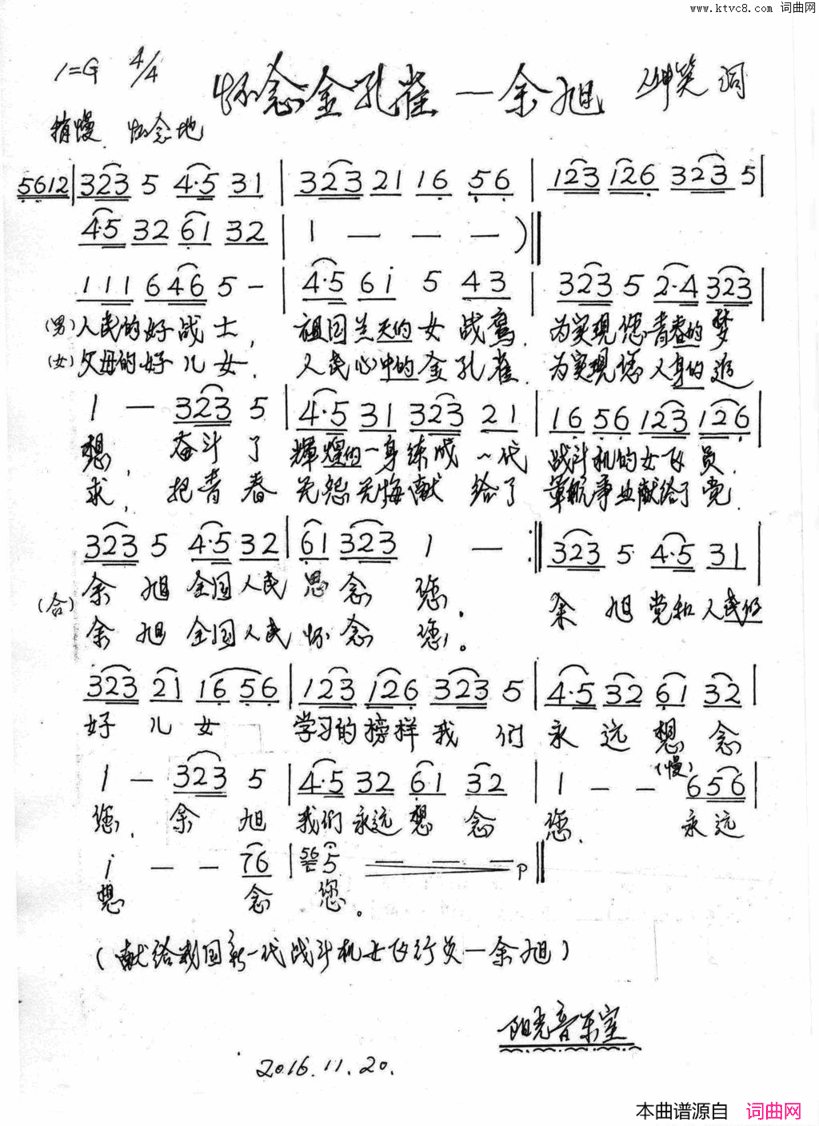 www.ktvc8.com 词曲网
1=G 4/4
怀念金孔雀—余旭 笑 词
稍慢 怀念地
5612 | 323 5 4·5 31 | 323 21 16 56 | 123 126 323 5 |
4·5 32 61 32 | 1 — — — ) ‖
111 646 5 — | 4·5 61 5 43 | 323 5 2·4 323
(男) 人民的好战士, 祖国蓝天的女战鹰, 为实现您青春的梦
(女) 父母的好儿女, 人民心中的金孔雀, 为实现您人身的追
1 — 323 5 | 4·5 31 323 21 | 16 56 123 126 |
想, 奋斗了 辉煌的一身练成一代 战斗机的女飞员,
求, 把青春 无怨无悔献给了 军航事业献给了党,
323 5 4·5 32 | 61 323 1 — :‖ 323 5 4·5 31 |
余旭全国人民思念您, 余旭党和人民的
(合) 余旭全国人民怀念您。
323 21 16 56 | 123 126 323 5 | 4·5 32 61 32 |
好儿女 学习的榜样我们 永远想念
(慢)
1 — 323 5 | 4·5 32 6·1 32 | 1 — — 656 |
您, 余旭 我们永远想念 您, 永远
i — — 76 | 56 5 — — — p ‖
想 念 您。
(献给我国新一代战斗机女飞行员—余旭)
阳光音乐室
2016.11.20.
本曲谱源自 词曲网